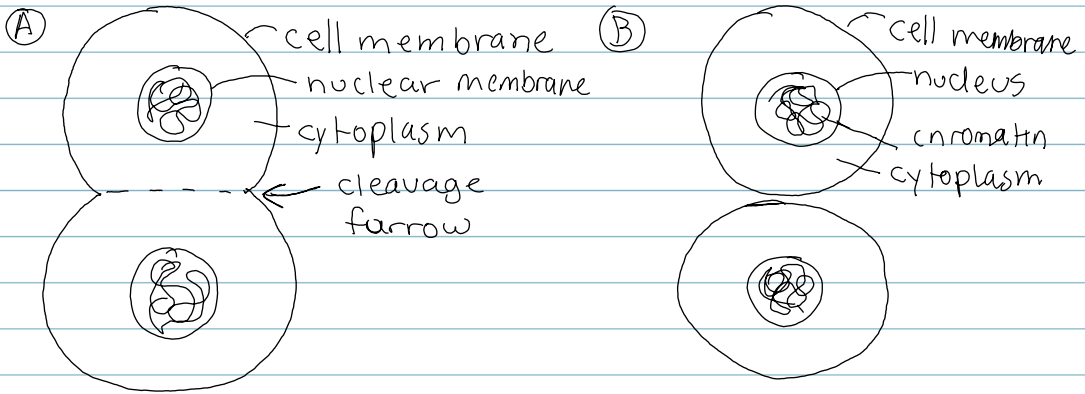 A
cell membrane
nuclear membrane
cytoplasm
cleavage
furrow
B
cell membrane
nucleus
chromatin
cytoplasm